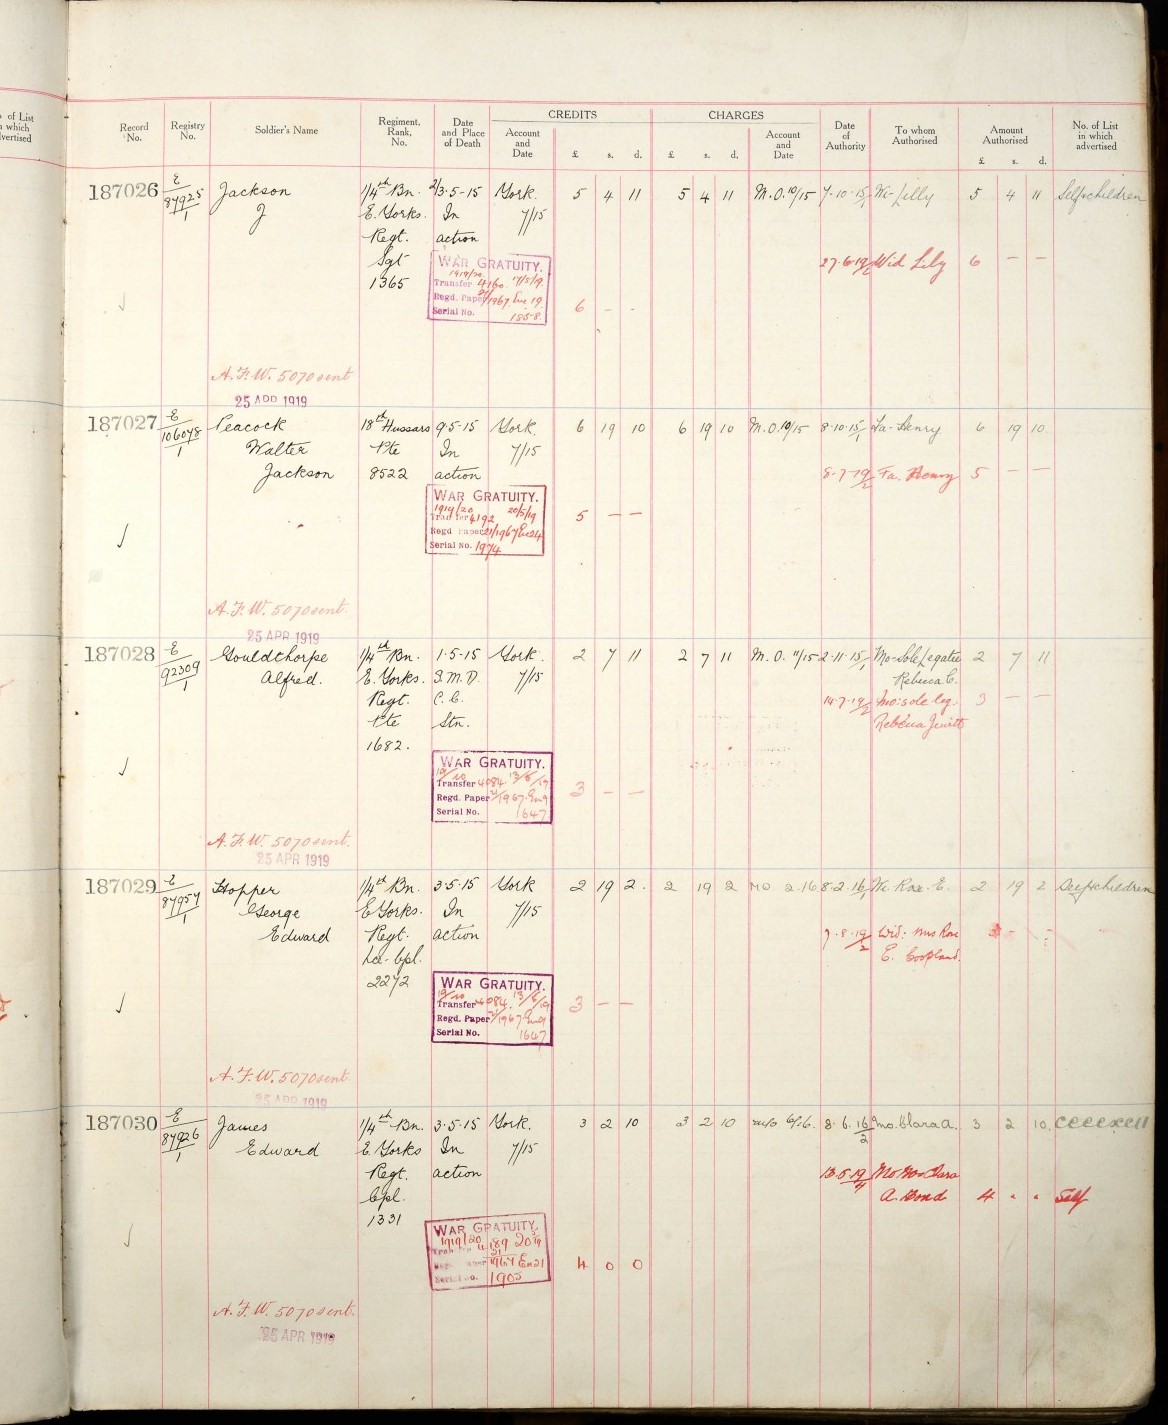 of List
in which
advertised
Record No.
Registry No.
Soldier's Name
Regiment, Rank, No.
Date and Place of Death
CREDITS
Account and Date
£ s. d.
CHARGES
£ s. d.
Account and Date
Date of Authority
To whom Authorised
Amount Authorised
£ s. d.
No. of List in which advertised
187026 E Jackson 1/4th Bn. 2/3·5·15 York. 5 4 11 5 4 11 M.O. 10/15 7·10·15/1 Wi- Lilly 5 4 11 Self+children
87925/1 J E. Yorks. In 7/15
Regt. action
Sgt WAR GRATUITY. 27·6·19/2 Wid Lily 6 — —
1365 1919/20
Transfer 4160 17/5/19.
Regd. Paper 21/1967 6 - -
Serial No. 1858.
A.F.W. 5070 sent
25 APR 1919
187027 E Peacock 18th Hussars 9·5·15 York. 6 19 10 6 19 10 M.O. 10/15 8·10·15/1 Fa- Henry 6 19 10.
106078/1 Walter Pte In 7/15
Jackson 8522 action 8·7·19/2 Fa. Henry 5 — —
WAR GRATUITY.
1919/20 20/5/19
Transfer 4192 5 — —
Regd Paper 21/1967
Serial No. 1974
A.F.W. 5070 sent.
25 APR 1919
187028 E Gouldthorpe 1/4th Bn. 1·5·15 York. 2 7 11 2 7 11 M.O. 11/15 2·11·15/1 Mo-Sole Legatee 2 7 11
92309/1 Alfred. E. Yorks. 3.M.D. 7/15 Rebecca C.
Regt. C.C. 14·7·19/2 Mo: sole leg. 3 — —
Pte Stn. Rebecca Jewitt
1682.
WAR GRATUITY.
19/20 13/6/19
Transfer 4084
Regd. Paper 21/1967 3 — —
Serial No. 1647
A.F.W. 5070 sent.
25 APR 1919
187029 E Hopper 1/4th Bn. 3·5·15 York 2 19 2. 2 19 2 MO 2.16 8·2·16/1 Wi. Rose. E. 2 19 2 Self+children
87957/1 George E Yorks. In 7/15
Edward Regt. action 7·8·19/2 Wid: Mrs Rose
Lce-Cpl. E. Coopland.
2272
WAR GRATUITY.
19/20 13/6/19
Transfer 4084. 3 — —
Regd. Paper 21/1967
Serial No. 1647
A.F.W. 5070 sent.
25 APR 1919
187030 E James 1/4th Bn. 3·5·15 York. 3 2 10 3 2 10 m/o 6/16. 8·6·16/2 Mo. Clara A. 3 2 10.
87926/1 Edward E. Yorks In 7/15
Regt. action 13·5·19/4
Cpl. A. Bond 4 Self
1331
WAR GRATUITY.
1919/20 4189
1967 4 0 0
Serial No. 1905
A.F.W. 5070 sent.
25 APR 1919